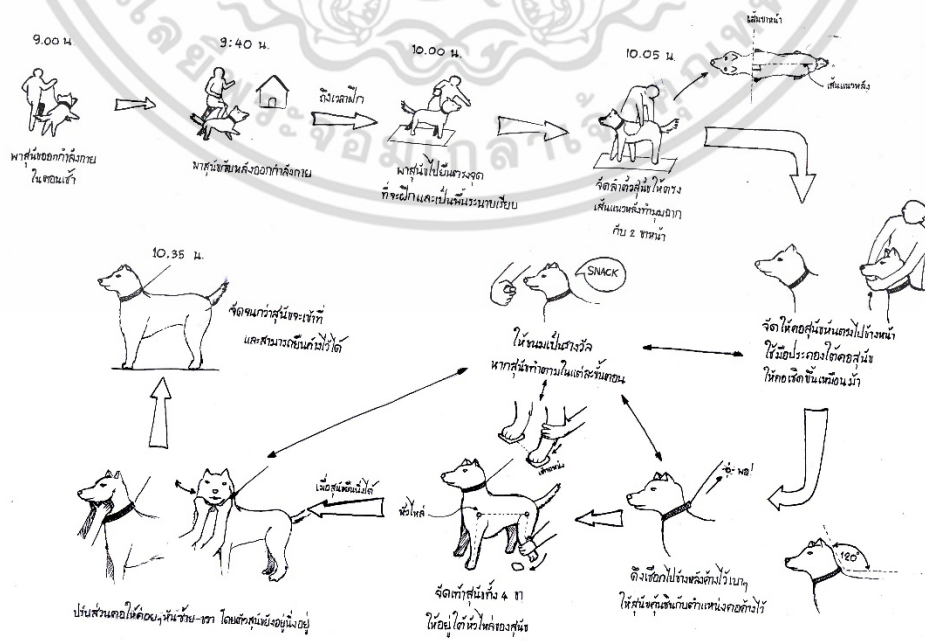 9.00 น.
พาสุนัขออกกำลังกาย
ในตอนเช้า
9:40 น.
พาสุนัขกลับหลังออกกำลังกาย
ถึงเวลาฝึก
10.00 น.
พาสุนัขไปยืนตรงจุด
ที่จะฝึกและเป็นพื้นระนาบเรียบ
10.05 น.
จัดลำตัวสุนัขให้ตรง
เส้นแนวหลังทำมุมฉาก
กับ 2 ขาหน้า
เส้นขาหน้า
เส้นแนวหลัง
จัดให้คอสุนัขหันตรงไปข้างหน้า
ใช้มือประคองใต้คอสุนัข
ให้คอเชิดขึ้นเหมือนม้า
120°
พอ!
ดึงเชือกไปข้างหลังค้างไว้เบาๆ
ให้สุนัขคุ้นชินกับตำแหน่งคอค้างไว้
SNACK
ให้ขนมเป็นรางวัล
หากสุนัขทำตามในแต่ละขั้นตอน
หัวไหล่
จัดเท้าสุนัขทั้ง 4 ขา
ให้อยู่ใต้หัวไหล่ของสุนัข
เมื่อสุนัขยืนนิ่งได้
ปรับส่วนคอให้ค่อยๆหันซ้าย-ขวา โดยตัวสุนัขยังอยู่นิ่งอยู่
10.35 น.
จัดจนกว่าสุนัขจะเข้าที่
และสามารถยืนค้างไว้ได้